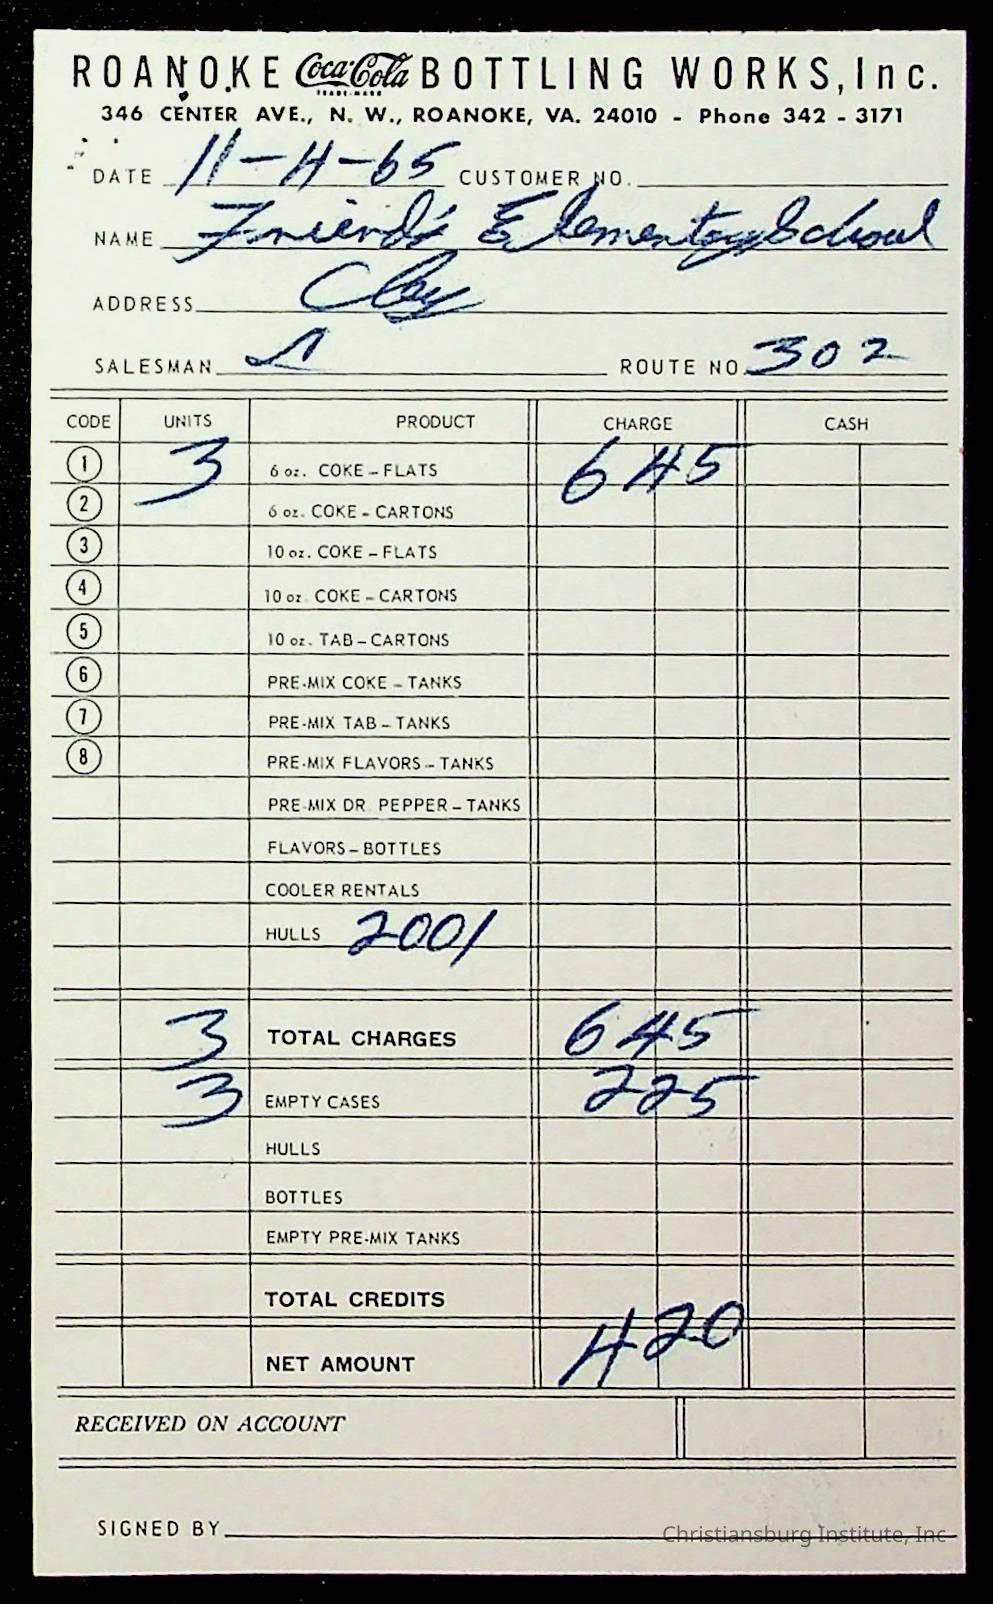 ROANOKE Coca-Cola BOTTLING WORKS, Inc.
TRADE-MARK
346 CENTER AVE., N. W., ROANOKE, VA. 24010 - Phone 342 - 3171
DATE 11-4-65 CUSTOMER NO.
NAME Friend's Elementary School
ADDRESS Clay
SALESMAN ROUTE NO. 302
CODE UNITS PRODUCT CHARGE CASH
1 3 6 oz. COKE - FLATS 6 45
2 6 oz. COKE - CARTONS
3 10 oz. COKE - FLATS
4 10 oz. COKE - CARTONS
5 10 oz. TAB - CARTONS
6 PRE-MIX COKE - TANKS
7 PRE-MIX TAB - TANKS
8 PRE-MIX FLAVORS - TANKS
PRE-MIX DR. PEPPER - TANKS
FLAVORS - BOTTLES
COOLER RENTALS
HULLS 2001
3 TOTAL CHARGES 6 45
3 EMPTY CASES 2 25
HULLS
BOTTLES
EMPTY PRE-MIX TANKS
TOTAL CREDITS
NET AMOUNT 4 20
RECEIVED ON ACCOUNT
SIGNED BY
Christiansburg Institute, Inc